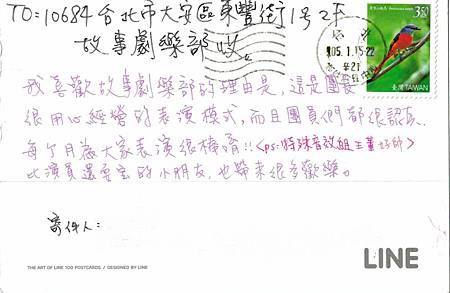 TO:10684台北市大安區東豐街1号2F
故事劇樂部收
我喜歡故事劇樂部的理由是,這是團長
很用心經營的表演模式,而且團員們都很認真
每個月為大家表演很精彩!!<ps:特殊音效組王董好帥>
比演員還耍寶的小朋友,也帶來很多歡樂。
3.50
臺灣 TAIWAN
105.1.15-22
寄件人:
THE ART OF LINE 100 POSTCARDS / DESIGNED BY LINE
LINE